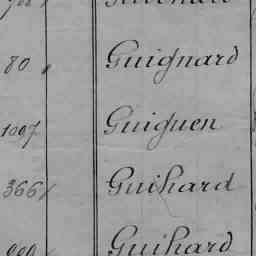 80 Guignard
1097 Guiguen
366 Guihard
Guihard